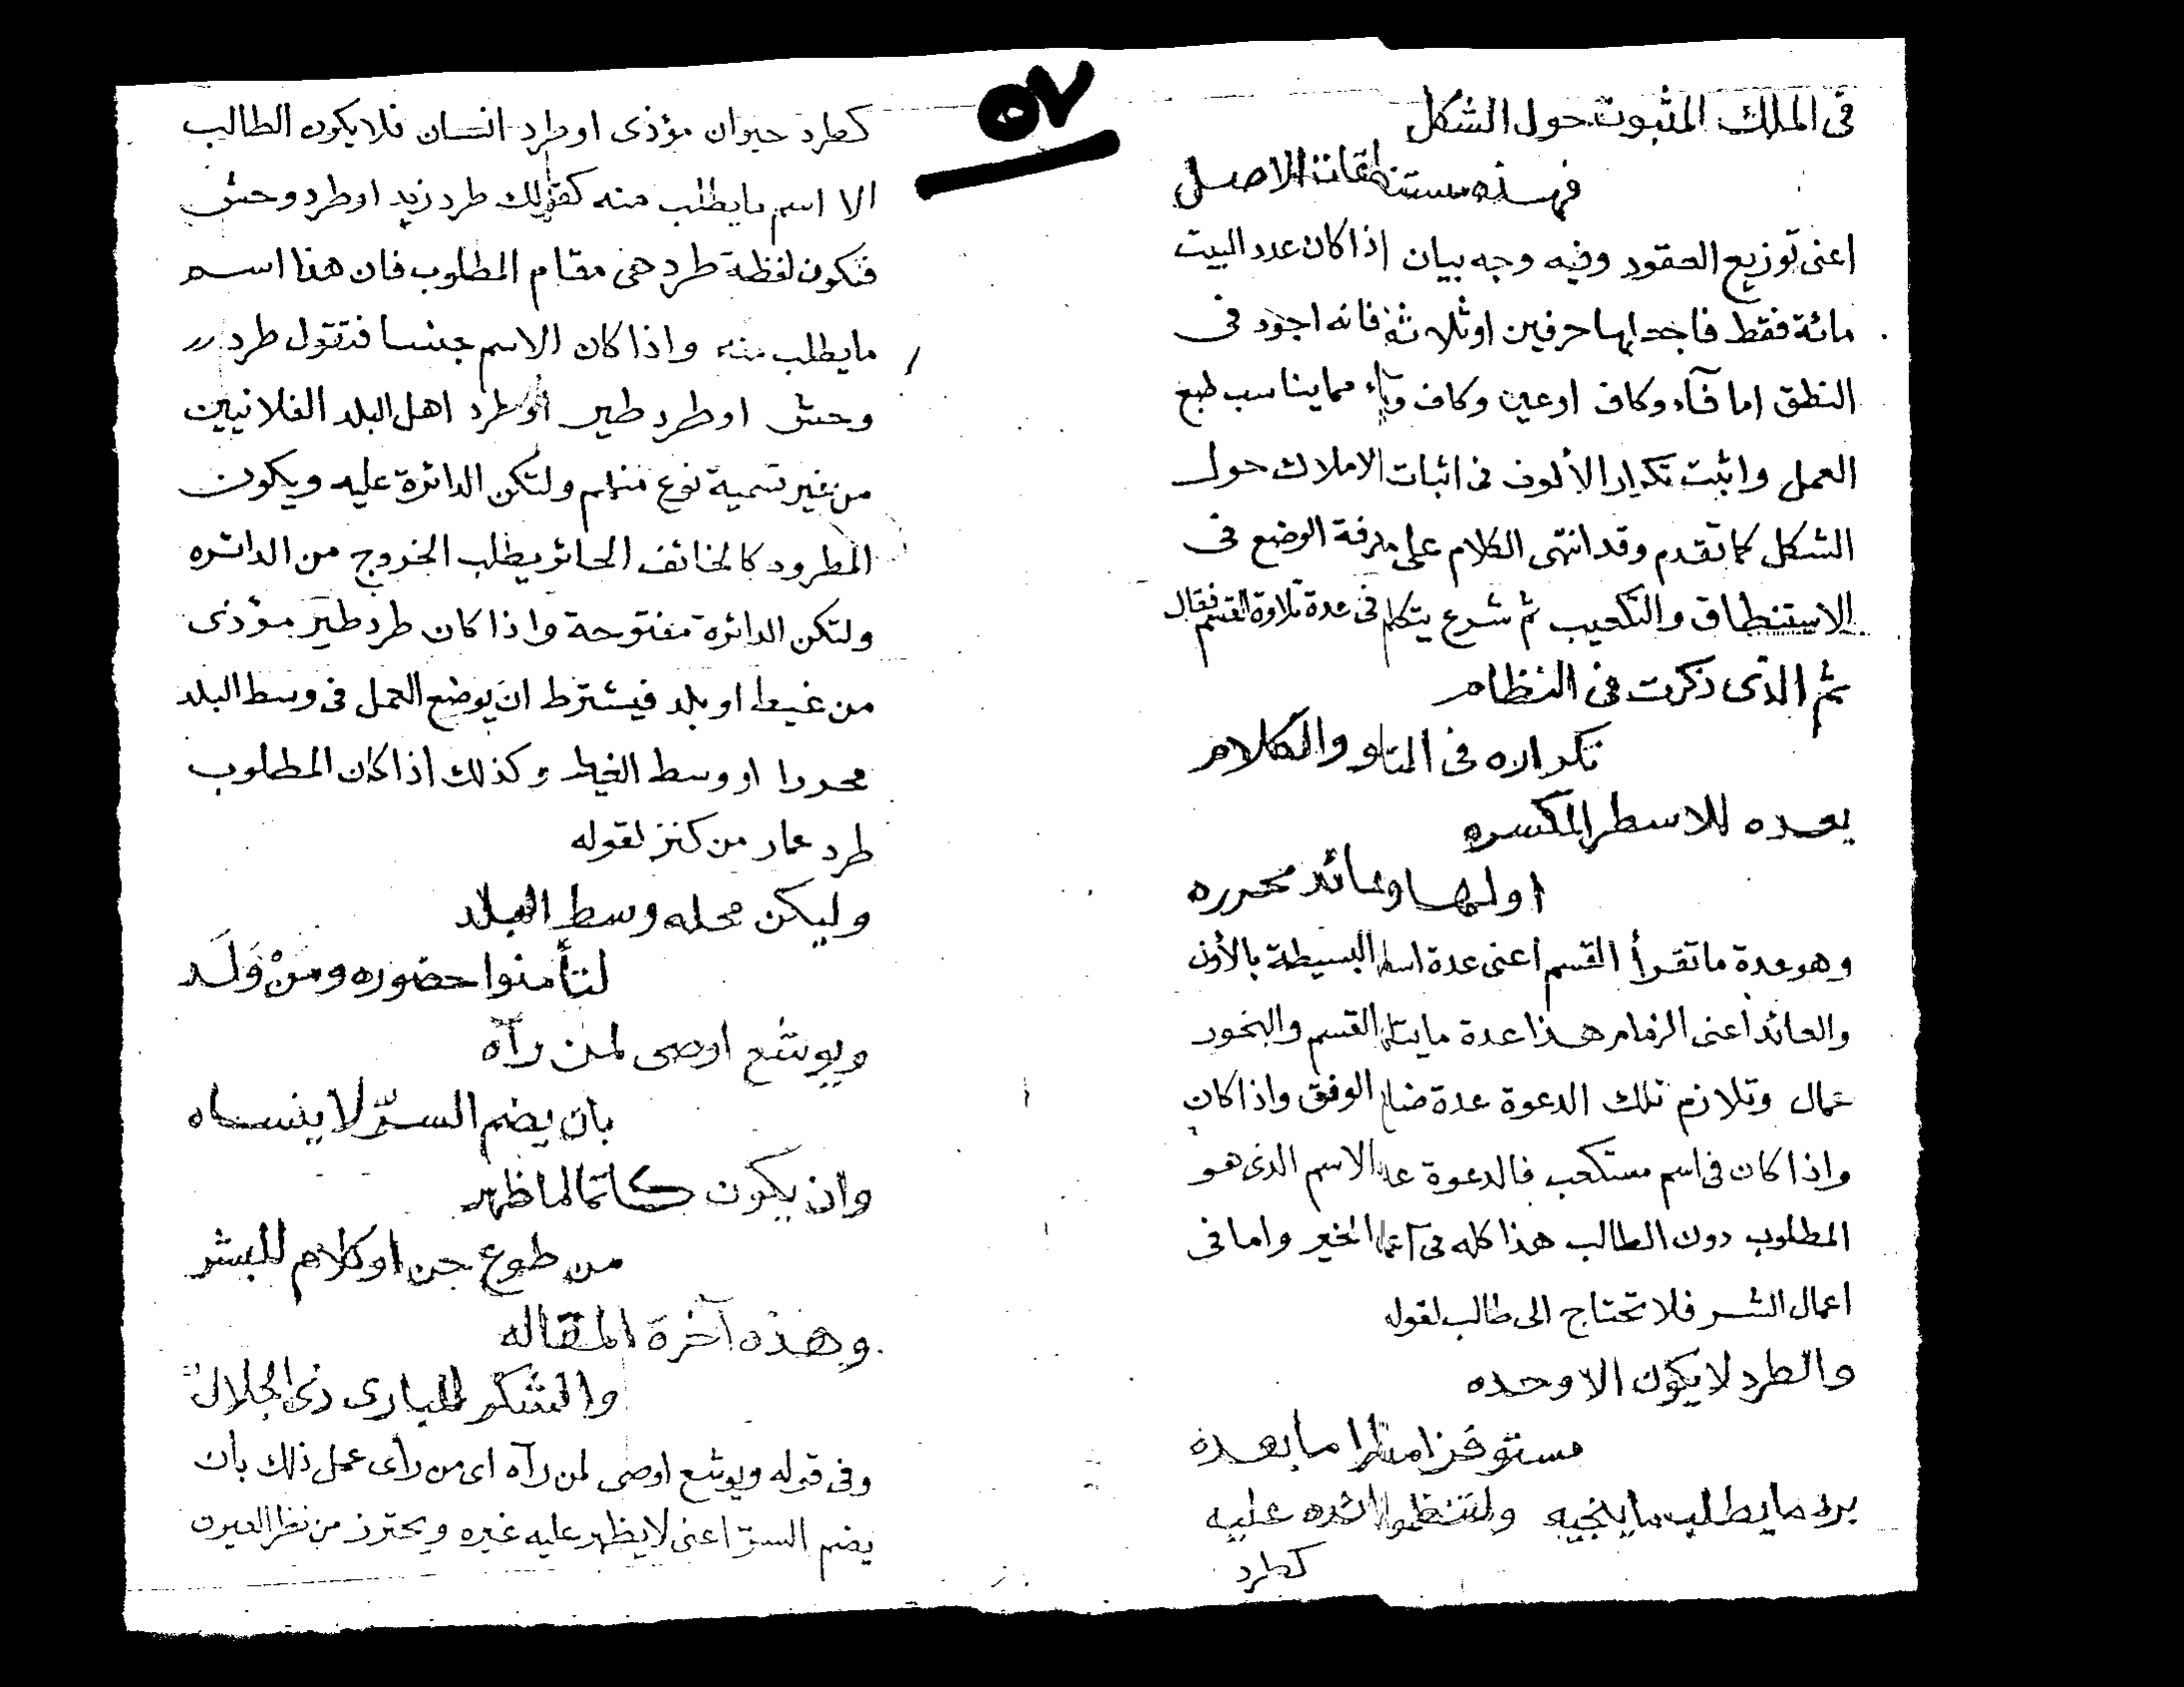 ٥٧
فى الملك المثبوت حول الشكل
فهذه مستنطقات الاصل
اعنى توزيع العقود وفيه وجه بيان اذا كان عدد البيت
مائة فقط فاجعلها حرفين اوثلاثة فانه اجود فى
النطق اما فآء وكاف اوعين وكاف ويآء مما يناسب طبع
العمل واثبت تكرار الألوف فى اثبات الاملاك حول
الشكل كما تقدم وقد انتهى الكلام على معرفة الوضع فى
الاستنطاق والتكعيب ثم شرع يتكلم فى عدة تلاوة القسم فقال
ثم الذى ذكرت فى النظام
تكراره فى المتلو والكلام
بعده للاسطر المكسره
اولها وعائد محرره
وهو عدة ما تقرأ القسم اعنى عدة اسطر البسيطة بالأول
والعائد اعنى الزمام هذا عدة ما يتلى القسم والبخور
عمال وتلازم تلك الدعوة عدة اضلاع الوفق واذا كان
واذا كان فى اسم مستكعب فالدعوة على الاسم الذى هو
المطلوب دون الطالب هذا كله فى اعمال الخير واما فى
اعمال الشر فلا تحتاج الى طالب لقوله
والطرد لا يكون الا وحده
مستوفزا ما بعده
برد ما يطلب ما ينجيه ولتنظر عليه
كطرد
كطرد حيوان مؤذى اوطرد انسان فلا يكون الطالب
الا اسم ما يطلب منه كقولك طرد زيد اوطرد وحش
فتكون لفظة طرد هى مقام المطلوب فان هذا اسم
ما يطلب منه واذا كان الاسم جنسا فتقول طرد
وحش اوطرد طير اوطرد اهل البلد الفلانيين
من غير تسمية نوع منهم ولتكن الدائرة عليه ويكون
المطرود كالخائف الحائر يطلب الخروج من الدائره
ولتكن الدائرة مفتوحة واذا كان طرد طير مؤذى
من غيط اوبلد فيشترط ان يوضع العمل فى وسط البلد
محررا اووسط الغيط وكذلك اذا كان المطلوب
طرد عمار من كنز لقوله
وليكن محله وسط البلد
لتأمنوا حضوره ومنْ وَلَد
ويوشع اوصى لمن رآه
بان يضم السرّ لا ينساه
وان يكون كاتما لما ظهر
من طوع جن اوكلام للبشر
وهذه آخرة المقاله
والشكر للبارى ذى الجلال
وفى قوله ويوشع اوصى لمن رآه اى من رأى عمل ذلك بأن
يضم السر اعنى لا يظهر عليه غيره ويحترز من نظر العيون